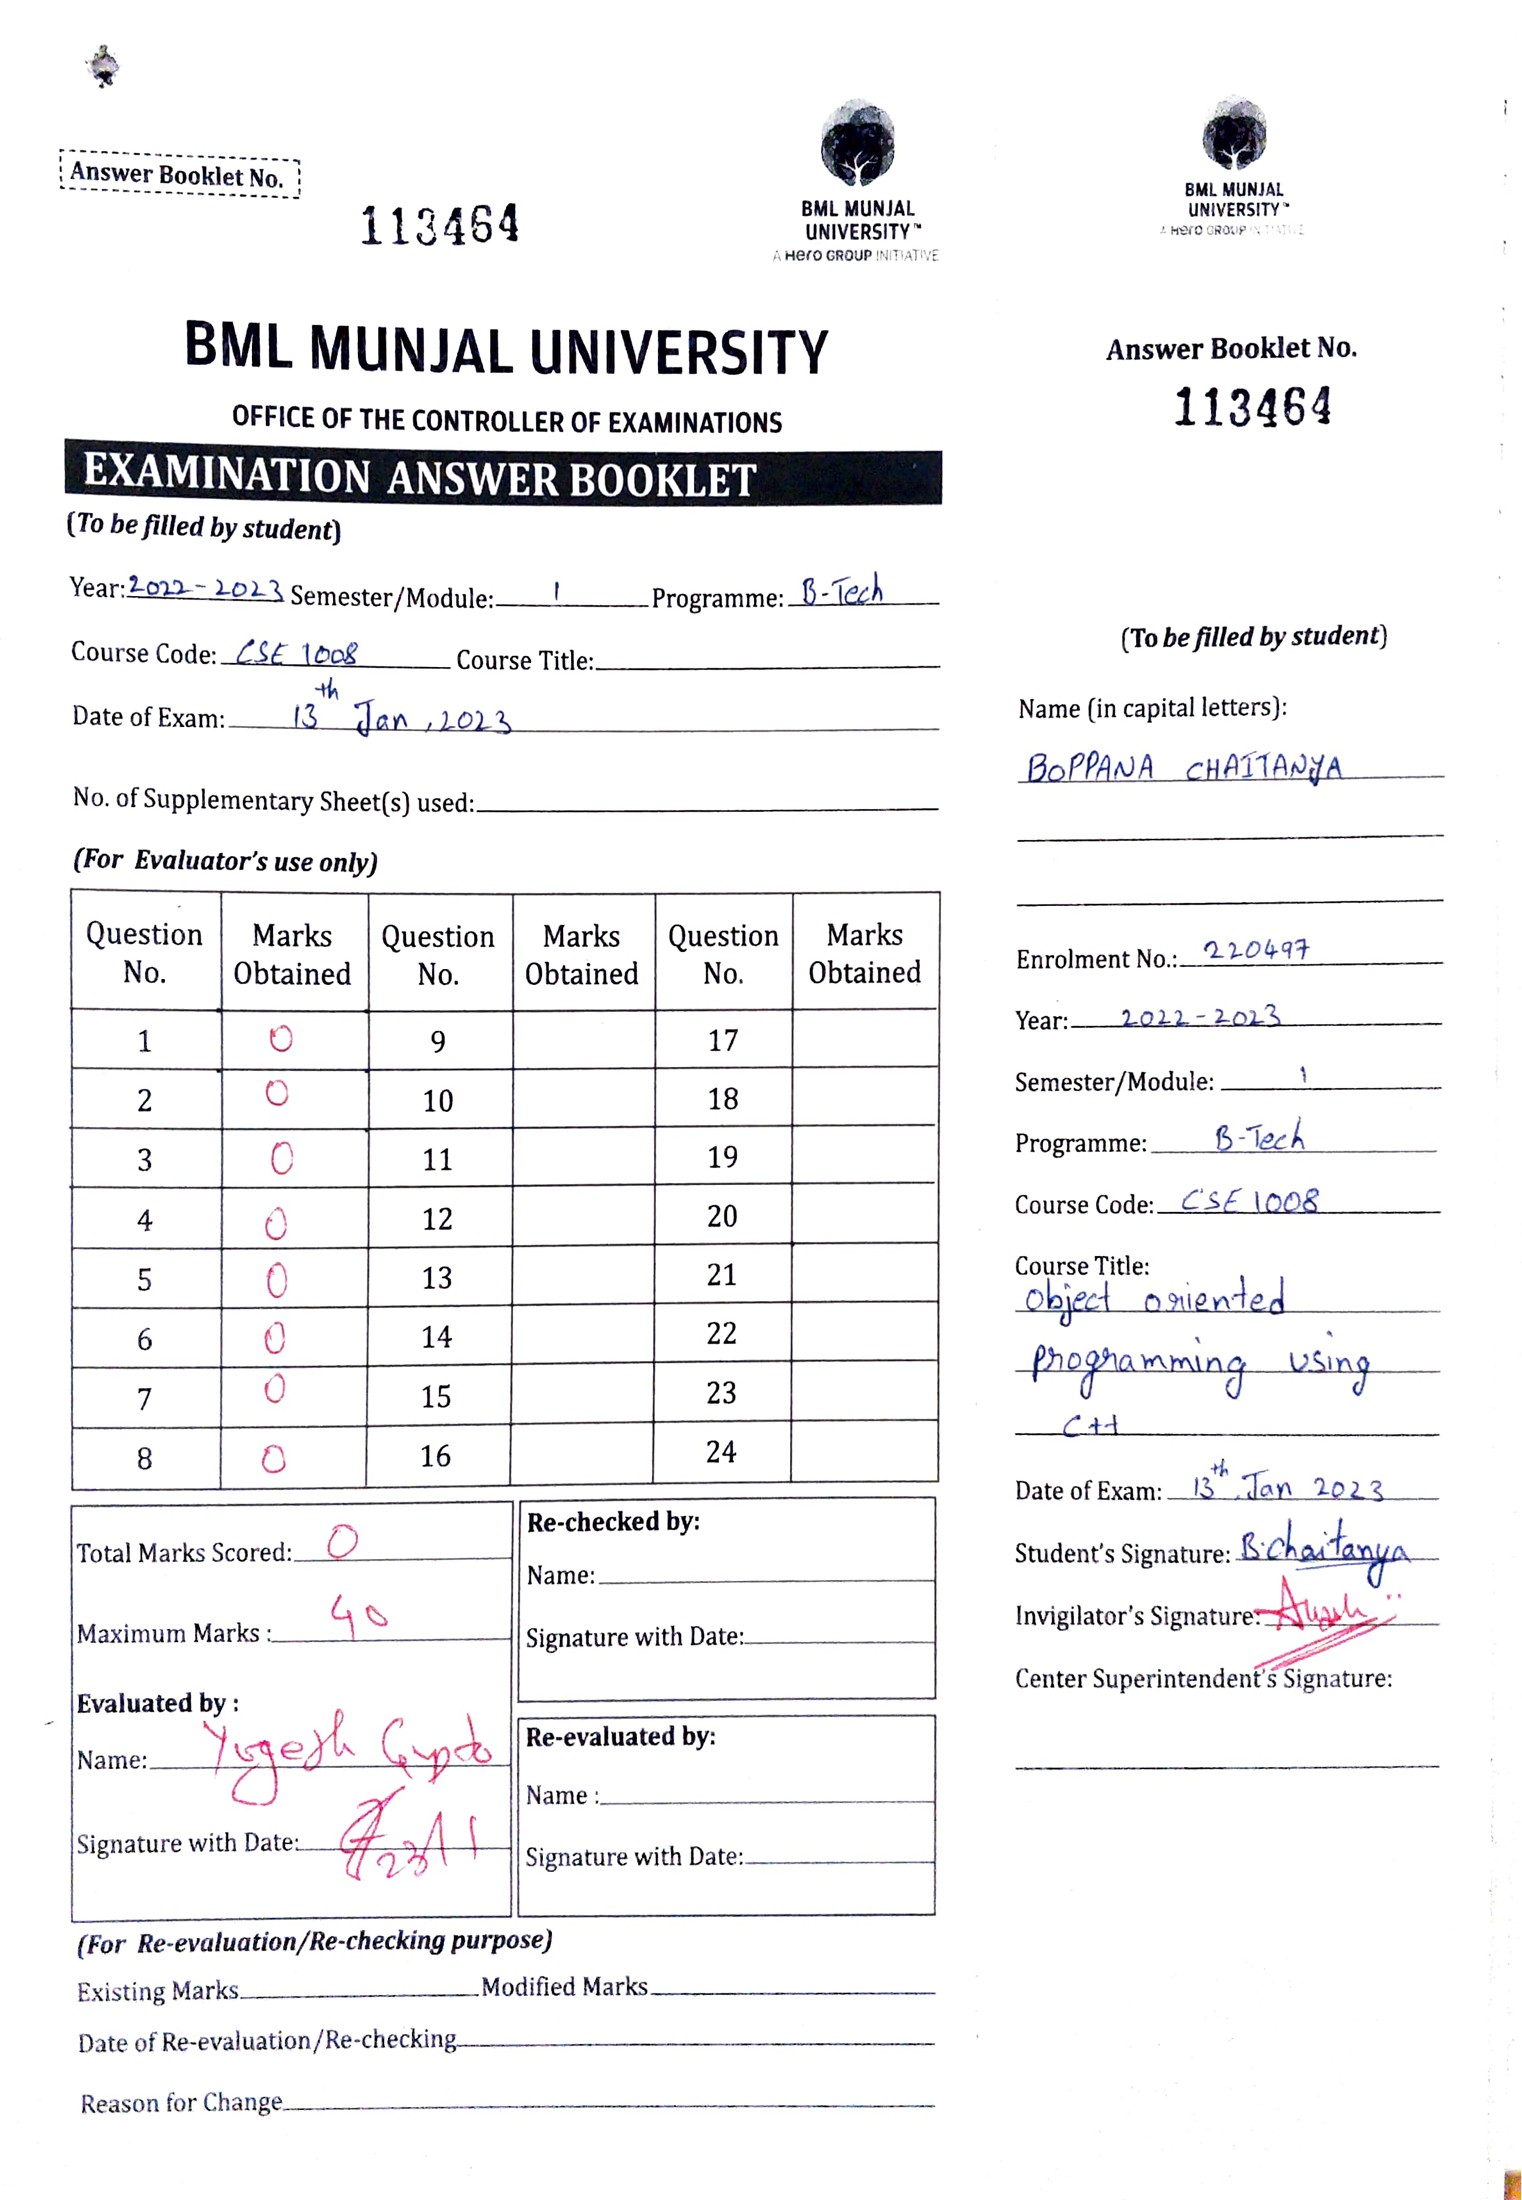 Answer Booklet No.
113464
BML MUNJAL
UNIVERSITY™
A Hero GROUP INITIATIVE
BML MUNJAL UNIVERSITY
OFFICE OF THE CONTROLLER OF EXAMINATIONS
EXAMINATION ANSWER BOOKLET
(To be filled by student)
Year: 2022-2023 Semester/Module: 1 Programme: B-Tech
Course Code: CSE 1008 Course Title:
Date of Exam: 13th Jan, 2023
No. of Supplementary Sheet(s) used:
(For Evaluator's use only)
Question No. Marks Obtained Question No. Marks Obtained Question No. Marks Obtained
1 0 9 17
2 0 10 18
3 0 11 19
4 0 12 20
5 0 13 21
6 0 14 22
7 0 15 23
8 0 16 24
Total Marks Scored: 0
Maximum Marks : 40
Evaluated by :
Name: Yogesh Gupta
Signature with Date: 23/1
Re-checked by:
Name:
Signature with Date:
Re-evaluated by:
Name :
Signature with Date:
(For Re-evaluation/Re-checking purpose)
Existing Marks Modified Marks
Date of Re-evaluation/Re-checking
Reason for Change
BML MUNJAL
UNIVERSITY™
A Hero GROUP INITIATIVE
Answer Booklet No.
113464
(To be filled by student)
Name (in capital letters):
BOPPANA CHAITANYA
Enrolment No.: 220497
Year: 2022-2023
Semester/Module: 1
Programme: B-Tech
Course Code: CSE 1008
Course Title:
object oriented
programming using
C++
Date of Exam: 13th Jan 2023
Student's Signature: B.chaitanya
Invigilator's Signature:
Center Superintendent's Signature: